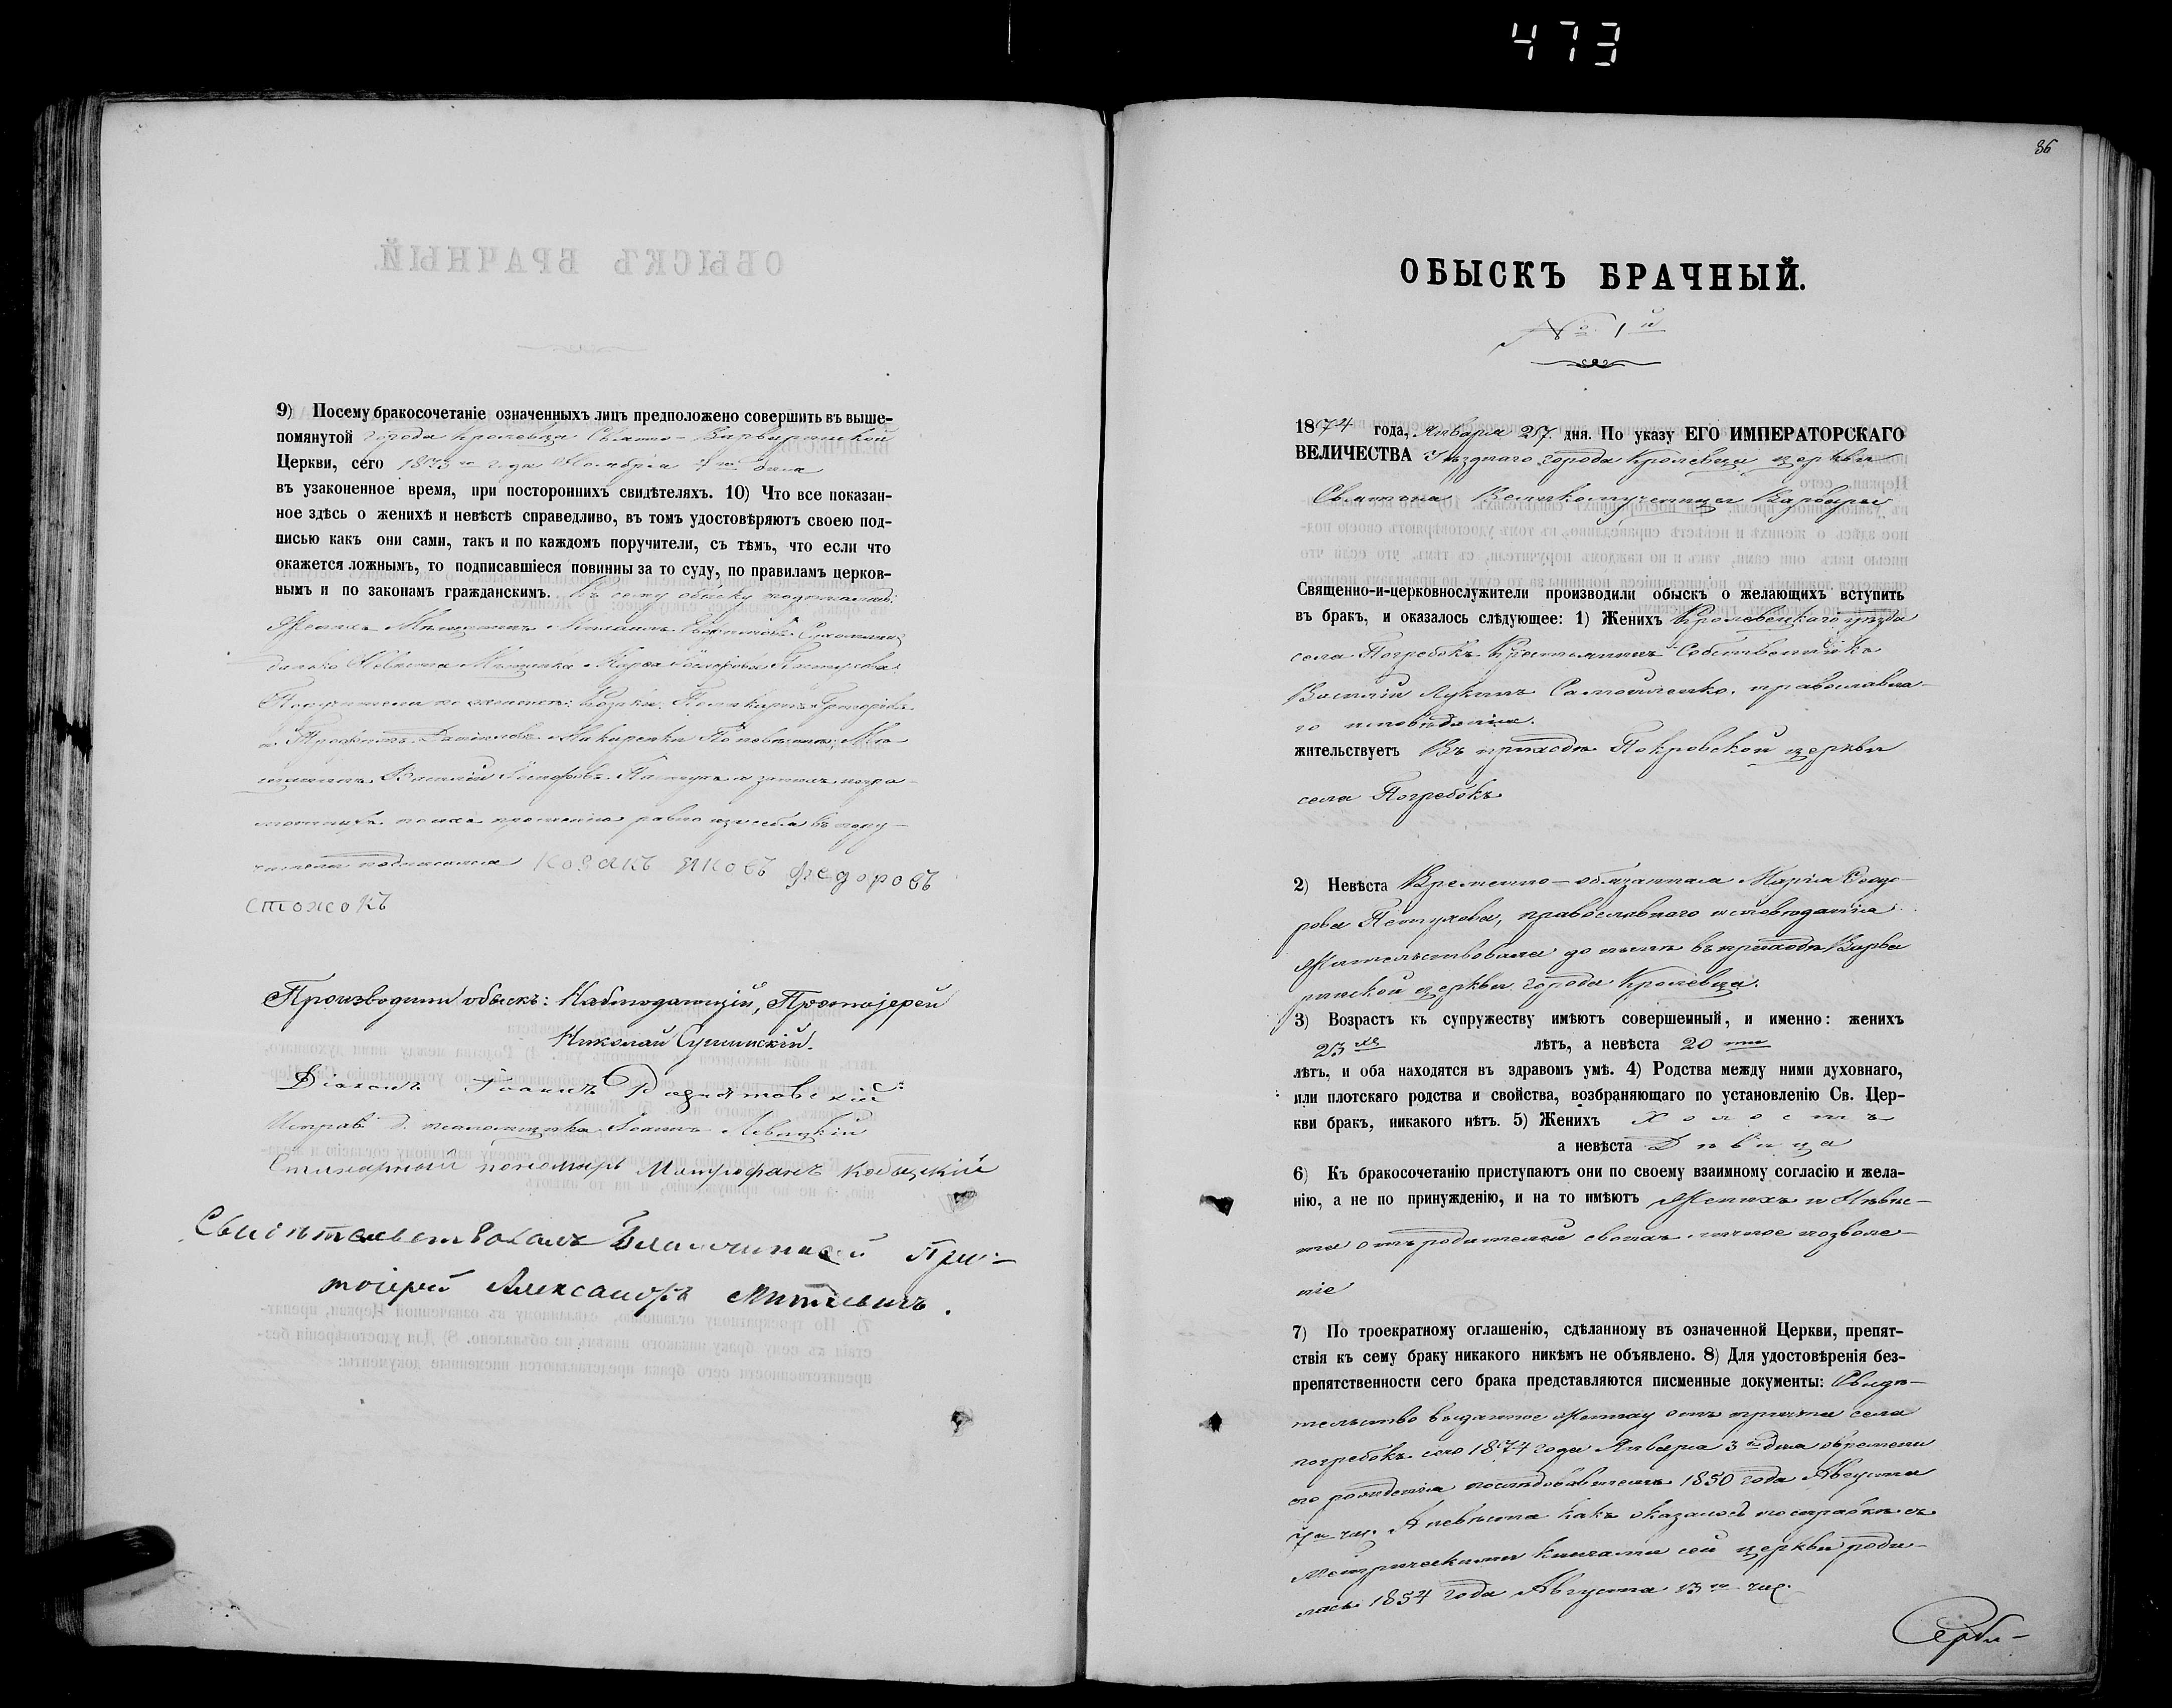 473
9) Посему бракосочетаніе означенныхъ лицъ предположено совершить въ выше-
помянутой города Кролевца Свято-Варваринской
Церкви, сего 1873го года Ноября 4го дня
въ узаконенное время, при постороннихъ свидѣтеляхъ. 10) Что все показан-
ное здѣсь о женихѣ и невѣстѣ справедливо, въ томъ удостовѣряютъ своею под-
писью какъ они сами, такъ и по каждомъ поручители, съ тѣмъ, что если что
окажется ложнымъ, то подписавшіеся повинны за то суду, по правиламъ церков-
нымъ и по законамъ гражданскимъ. Къ сему обыску подписались:
Женихъ Мѣщанинъ Михаилъ
Невѣста Мѣщанка
Поручители по женихѣ: Козаки: Григорьевъ
и Трофимъ Даниловъ Макаренки По невѣстѣ: Мѣ
щанинъ Василій Пастухъ а за нихъ негра-
мотныхъ по ихъ прошенію равно и за себя въ пору-
чители подписался Козакъ Яковъ Федоровъ
Стожокъ
Производили обыскъ: Наблюдающій, Протоіерей
Николай Сулимскій.
Діаконъ Іоаннъ
Исправ. д. псаломщика Іоаннъ Левицкій
Стихарный пономарь Митрофанъ
Свидѣтельствовалъ Благочинный Про-
тоіерей Александръ
36
ОБЫСКЪ БРАЧНЫЙ.
№ 1й
1874 года, Января 27 дня. По указу ЕГО ИМПЕРАТОРСКАГО
ВЕЛИЧЕСТВА Уѣзднаго города Кролевца церкви
Святыя Великомученицы Варвары
Священно-и-церковнослужители производили обыскъ о желающихъ вступить
въ бракъ, и оказалось слѣдующее: 1) Женихъ Кролевецкаго уѣзда
села Погребокъ Крестьянинъ Собственникъ
Василій Лукинъ Самойленко, православна-
го исповѣданія.
жительствуетъ Въ приходѣ Покровской церкви
села Погребокъ
2) Невѣста Временно-обязанная Марія Ѳедо-
рова Петухова, православнаго исповѣданія
Жительствовала до нынѣ въ приходѣ Варва
ринской церкви города Кролевца.
3) Возрастъ къ супружеству имѣютъ совершенный, и именно: женихъ
23хъ лѣтъ, а невѣста 20ти
лѣтъ, и оба находятся въ здравомъ умѣ. 4) Родства между ними духовнаго,
или плотскаго родства и свойства, возбраняющаго по установленію Св. Цер-
кви бракъ, никакого нѣтъ. 5) Женихъ Холостъ
а невѣста Дѣвица
6) Къ бракосочетанію приступаютъ они по своему взаимному согласію и жела-
нію, а не по принужденію, и на то имѣютъ Женихъ и Невѣс-
та отъ родителей своихъ личное позволе-
ніе
7) По троекратному оглашенію, сдѣланному въ означенной Церкви, препят-
ствія къ сему браку никакого никѣмъ не объявлено. 8) Для удостовѣренія без-
препятственности сего брака представляются писменные документы: Свидѣ-
тельство выданное Жениху отъ причта села
погребокъ сего 1874 года Января 3го дня о времени
его рожденія послѣдовавшемъ 1850 года Августа
7го чис. А невѣста какъ оказалось по справкѣ съ
Метрическими книгами сей церкви роди-
лась 1854 года Августа 13го чис.